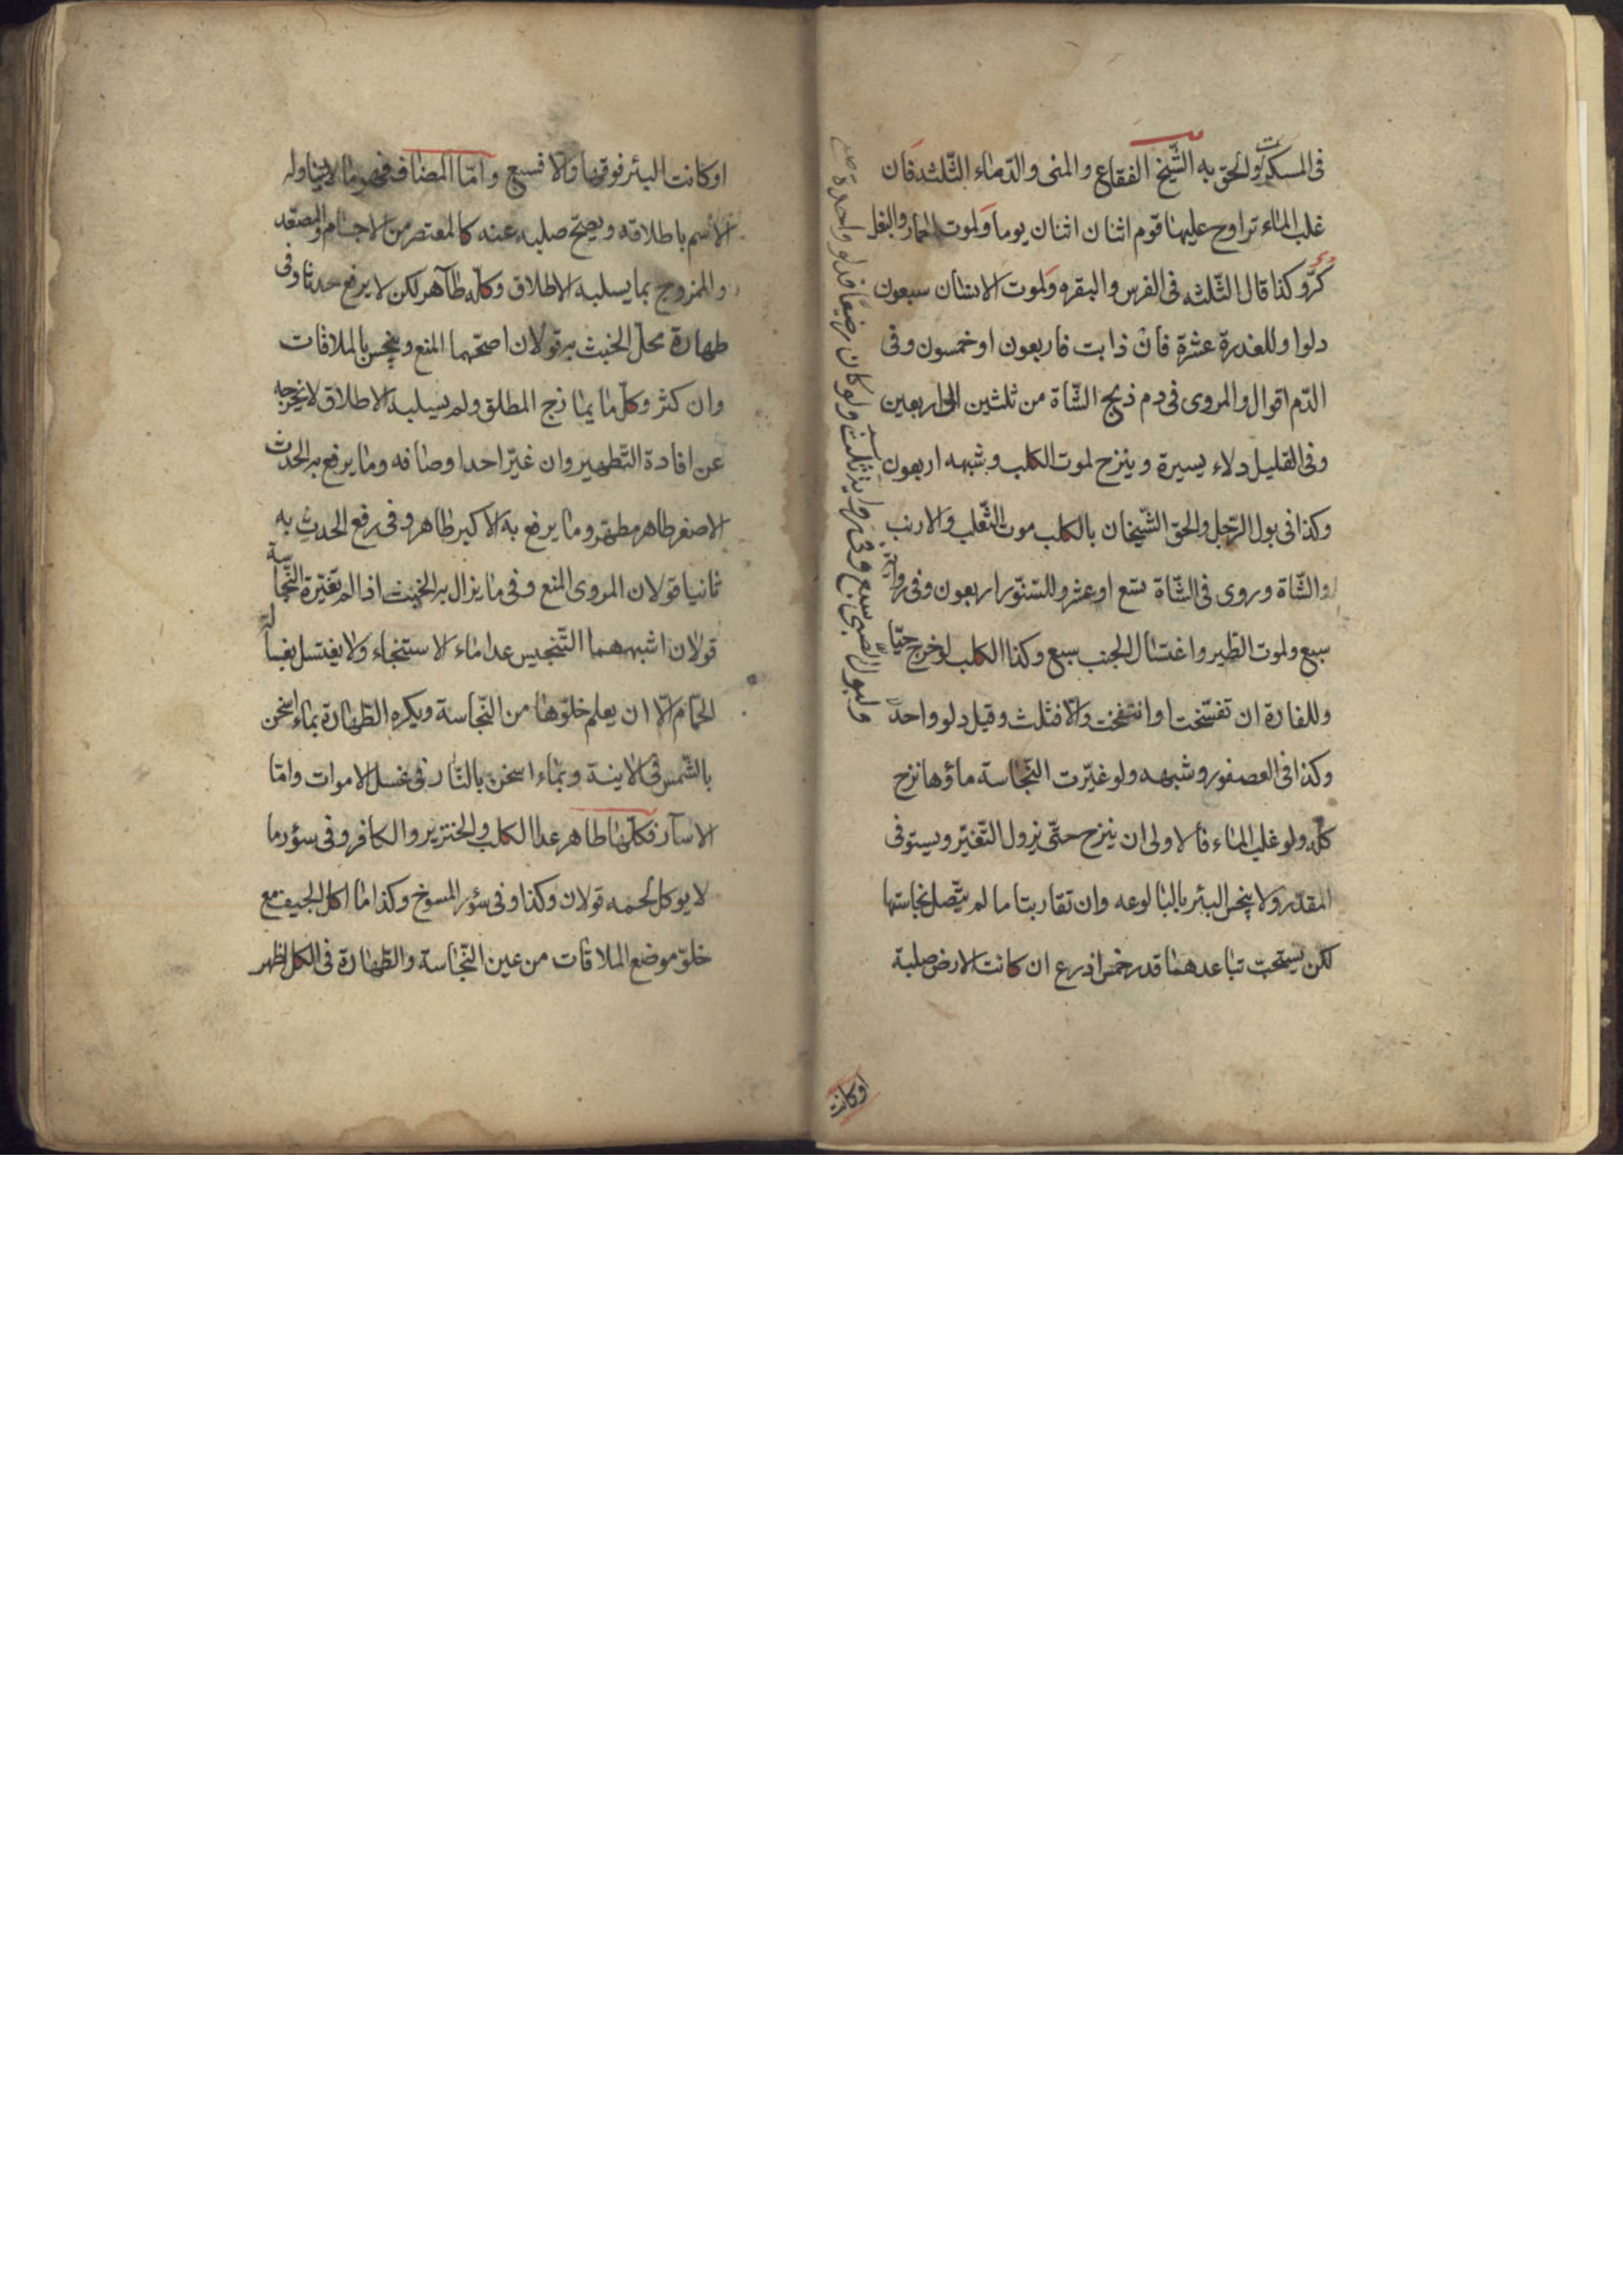 فى المسكرات والحق به الشّيخ الفقاع والمنى والدّماء الثّلثه فان
غلب الماء تراوح عليها قوم اثنان اثنان يوما ولموت الحمار والبغل
كرّ وكذا قال الثّلثه فى الفرس والبقره ولموت الانسان سبعون
دلوا وللعذرة عشرة فان ذابت فاربعون او خمسون وفى
الدّم اقوال والمروى فى دم ذبح الشّاة من ثلثين الى اربعين
وفى القليل دلاء يسيرة وينزح لموت الكلب وشبهه اربعون
وكذا فى بول الرّجل والحق الشّيخان بالكلب موت الثّعلب والارنب
والشّاة وروى فى الشّاة تسع او عشر وللسّنّور اربعون وفى رواية
سبع ولموت الطّير واغتسال الجنب سبع وكذا الكلب لو خرج حيّا
وللفارة ان تفسّخت او انتفخت والّا فثلث وقيل دلو واحد
وكذا فى العصفور وشبهه ولو غيّرت النّجاسة ماؤها نزح
كلّه ولو غلب الماء فالاولى ان ينزح حتّى يزول التّغيّر ويستوفى
المقدّر ولا ينجس البئر بالبالوعه وان تقاربتا ما لم يتّصل نجاستها
لكن يستحبّ تباعدهما قدر خمس اذرع ان كانت الارض صلبة
ولبول الصّبىّ سبع وفى رواية ثلث ولو كان رضيعا فدلو واحد
اوكانت
اوكانت البئر فوقها والّا فسبع وامّا المضاف فهو ما لا يتناوله
الاسم باطلاقه ويصحّ صلبه عنه كالمعتصر من الاجسام والمصعّد
والممزوج بما يسلبه الاطلاق وكلّه طاهر لكن لا يرفع حدثا وفى
طهارة محلّ الخبث به قولان اصحّهما المنع وينجس بالملاقات
وان كثر وكلّ ما يمازج المطلق ولم يسلبه الاطلاق لا يخرجه
عن افادة التّطهير وان غيّر احد اوصافه وما يرفع به الحدث
الاصغر طاهر مطهّر وما يرفع به الاكبر طاهر وفى رفع الحدث به
ثانيا قولان المروى المنع وفى ما يزال به الخبث اذا لم تغيّره النّجاسة
قولان اشبههما التّنجيس عدا ماء الاستنجاء ولا يغتسل بغسالة
الحمّام الّا ان يعلم خلوّها من النّجاسة ويكره الطّهارة بماء اسخن
بالشّمس فى الانية وبماء اسخن بالنّار فى غسل الاموات وامّا
الاسآر فكلّها طاهر عدا الكلب والخنزير والكافر وفى سؤر ما
لا يوكل لحمه قولان وكذا وفى سؤر المسوخ وكذا ما اكل الجيف مع
خلوّ موضع الملاقات من عين النّجاسة والطّهارة فى الكل اظهر